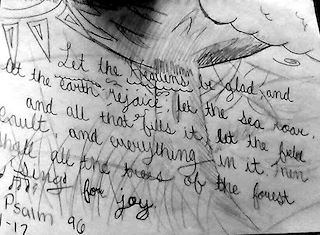 Let the Heavens be glad, and
let the earth rejoice; let the sea roar,
and all that fills it; let the field
exult, and everything in it. Then
shall all the trees of the forest
sing for joy.
Psalm 96
1-17